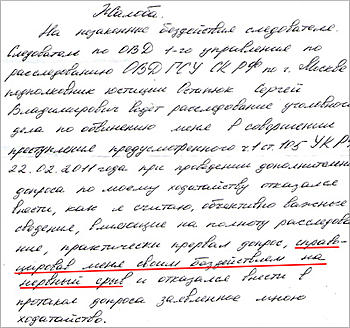 Жалоба.
На незаконные бездействия следователя.
Следователь по ОВД 1-го управления по
расследованию ОВД ГСУ СК РФ по г. Москве
подполковник юстиции Остапюк Сергей
Владимирович ведёт расследование уголовного
дела по обвинению меня в совершении
преступления предусмотренного ч.1 ст. 105 УК РФ
22.02.2011 года при проведении дополнительн
допроса по моему ходатайству отказался
внести, как я считаю, объективно важные
сведения, влеющие на полноту расследова
ние, практически прервал допрос, спрово-
цировав меня своим бездействием на
нервный срыв и отказался внести в
протокол допроса заявленное мною
ходатайство.